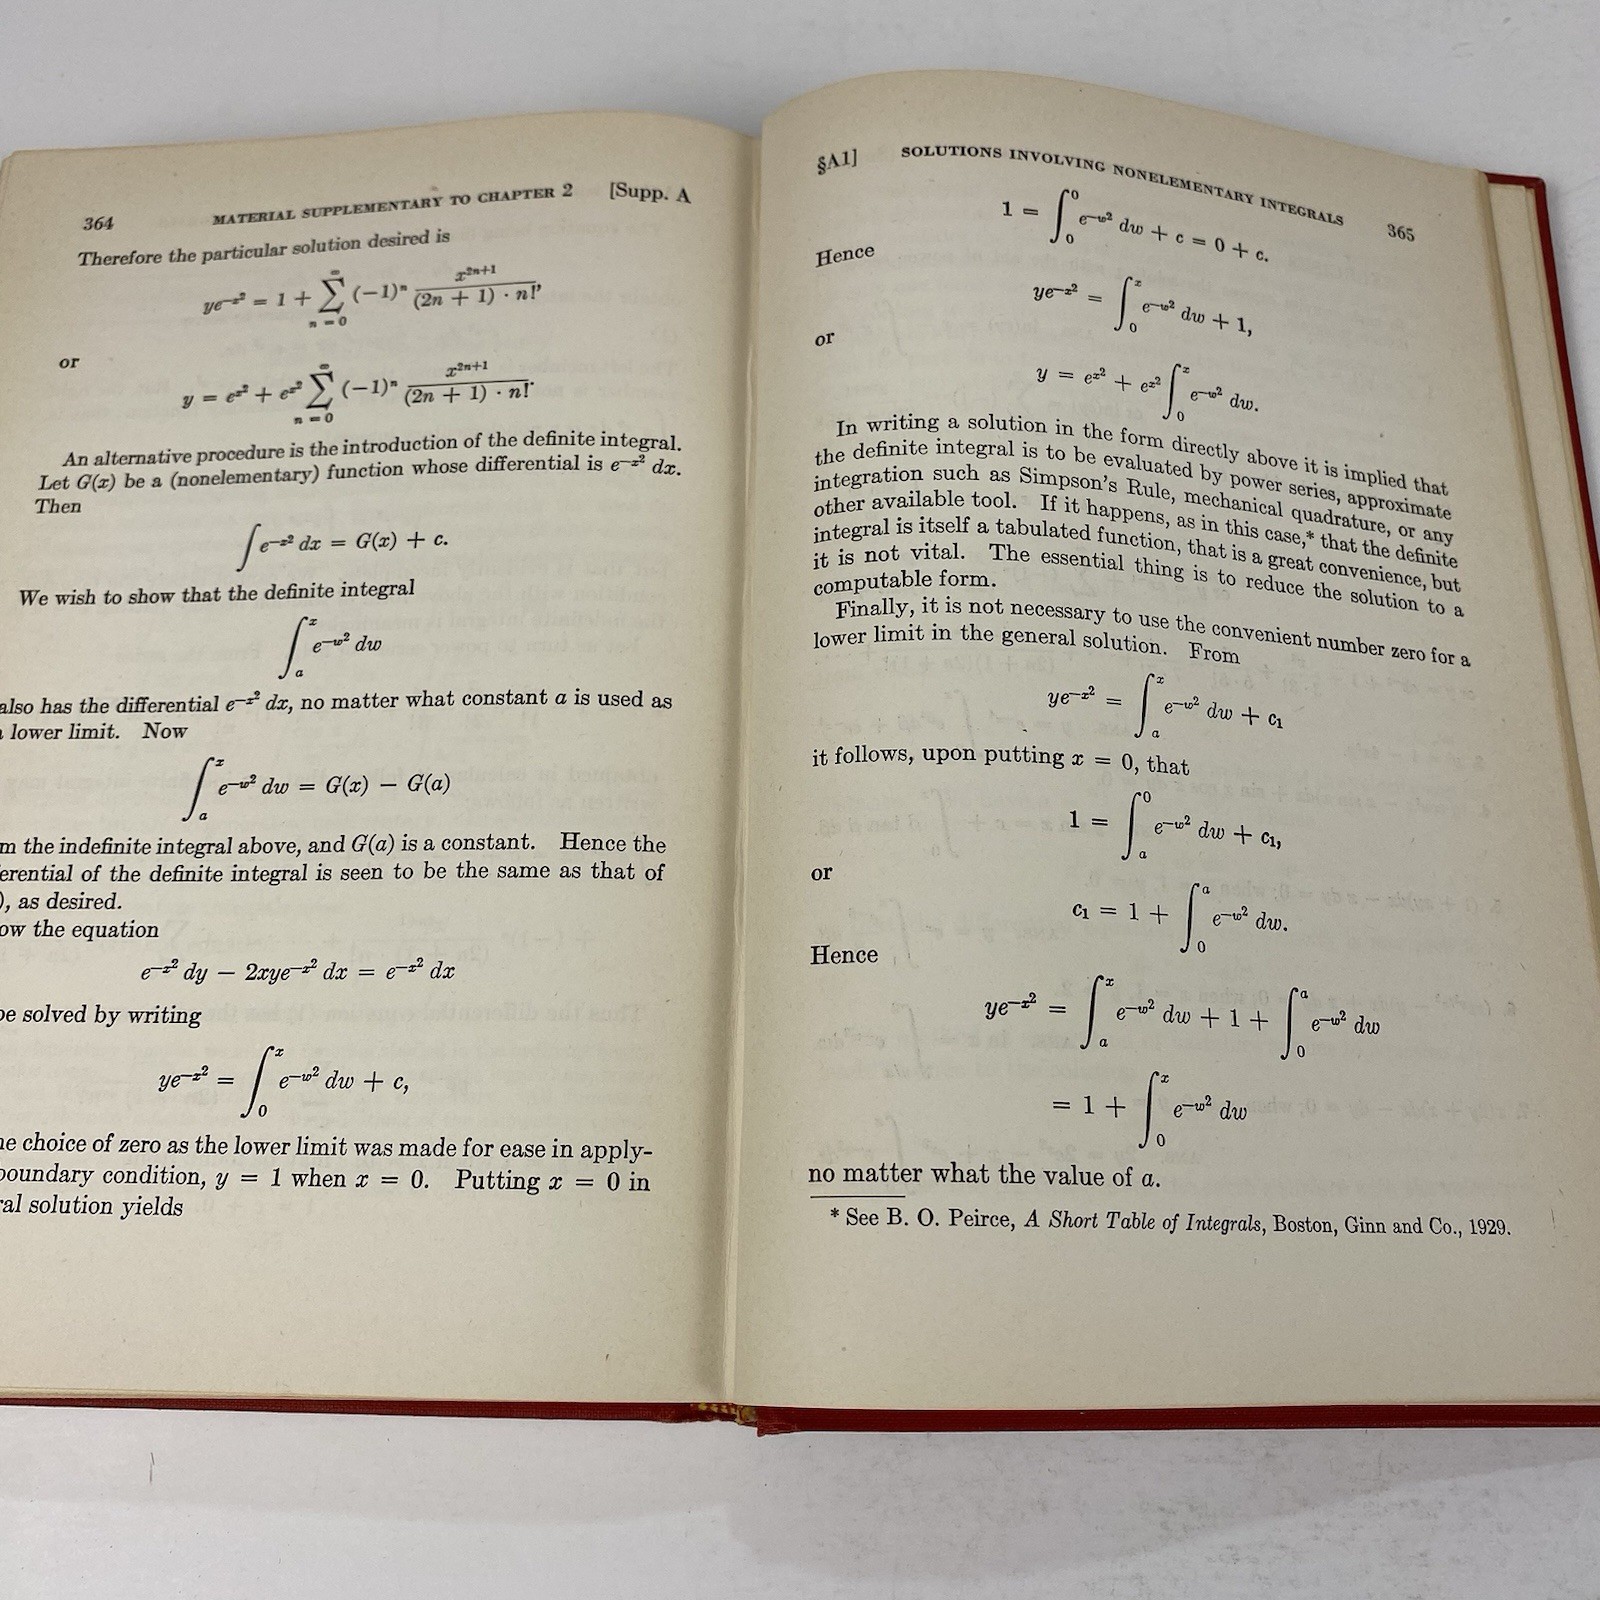 364 MATERIAL SUPPLEMENTARY TO CHAPTER 2 [Supp. A
Therefore the particular solution desired is
ye^{-x^2} = 1 + \sum_{n=0}^{\infty} (-1)^n \frac{x^{2n+1}}{(2n + 1) \cdot n!},
or
y = e^{x^2} + e^{x^2} \sum_{n=0}^{\infty} (-1)^n \frac{x^{2n+1}}{(2n + 1) \cdot n!}.
An alternative procedure is the introduction of the definite integral.
Let G(x) be a (nonelementary) function whose differential is e^{-x^2} dx.
Then
\int e^{-x^2} dx = G(x) + c.
We wish to show that the definite integral
\int_a^x e^{-w^2} dw
also has the differential e^{-x^2} dx, no matter what constant a is used as
lower limit. Now
\int_a^x e^{-w^2} dw = G(x) - G(a)
m the indefinite integral above, and G(a) is a constant. Hence the
erential of the definite integral is seen to be the same as that of
), as desired.
ow the equation
e^{-x^2} dy - 2xye^{-x^2} dx = e^{-x^2} dx
be solved by writing
ye^{-x^2} = \int_0^x e^{-w^2} dw + c,
he choice of zero as the lower limit was made for ease in apply-
boundary condition, y = 1 when x = 0. Putting x = 0 in
ral solution yields
§A1] SOLUTIONS INVOLVING NONELEMENTARY INTEGRALS 365
1 = \int_0^0 e^{-w^2} dw + c = 0 + c.
Hence
ye^{-x^2} = \int_0^x e^{-w^2} dw + 1,
or
y = e^{x^2} + e^{x^2} \int_0^x e^{-w^2} dw.
In writing a solution in the form directly above it is implied that
the definite integral is to be evaluated by power series, approximate
integration such as Simpson's Rule, mechanical quadrature, or any
other available tool. If it happens, as in this case,* that the definite
integral is itself a tabulated function, that is a great convenience, but
it is not vital. The essential thing is to reduce the solution to a
computable form.
Finally, it is not necessary to use the convenient number zero for a
lower limit in the general solution. From
ye^{-x^2} = \int_a^x e^{-w^2} dw + c_1
it follows, upon putting x = 0, that
1 = \int_a^0 e^{-w^2} dw + c_1,
or
c_1 = 1 + \int_0^a e^{-w^2} dw.
Hence
ye^{-x^2} = \int_a^x e^{-w^2} dw + 1 + \int_0^a e^{-w^2} dw
= 1 + \int_0^x e^{-w^2} dw
no matter what the value of a.
* See B. O. Peirce, A Short Table of Integrals, Boston, Ginn and Co., 1929.